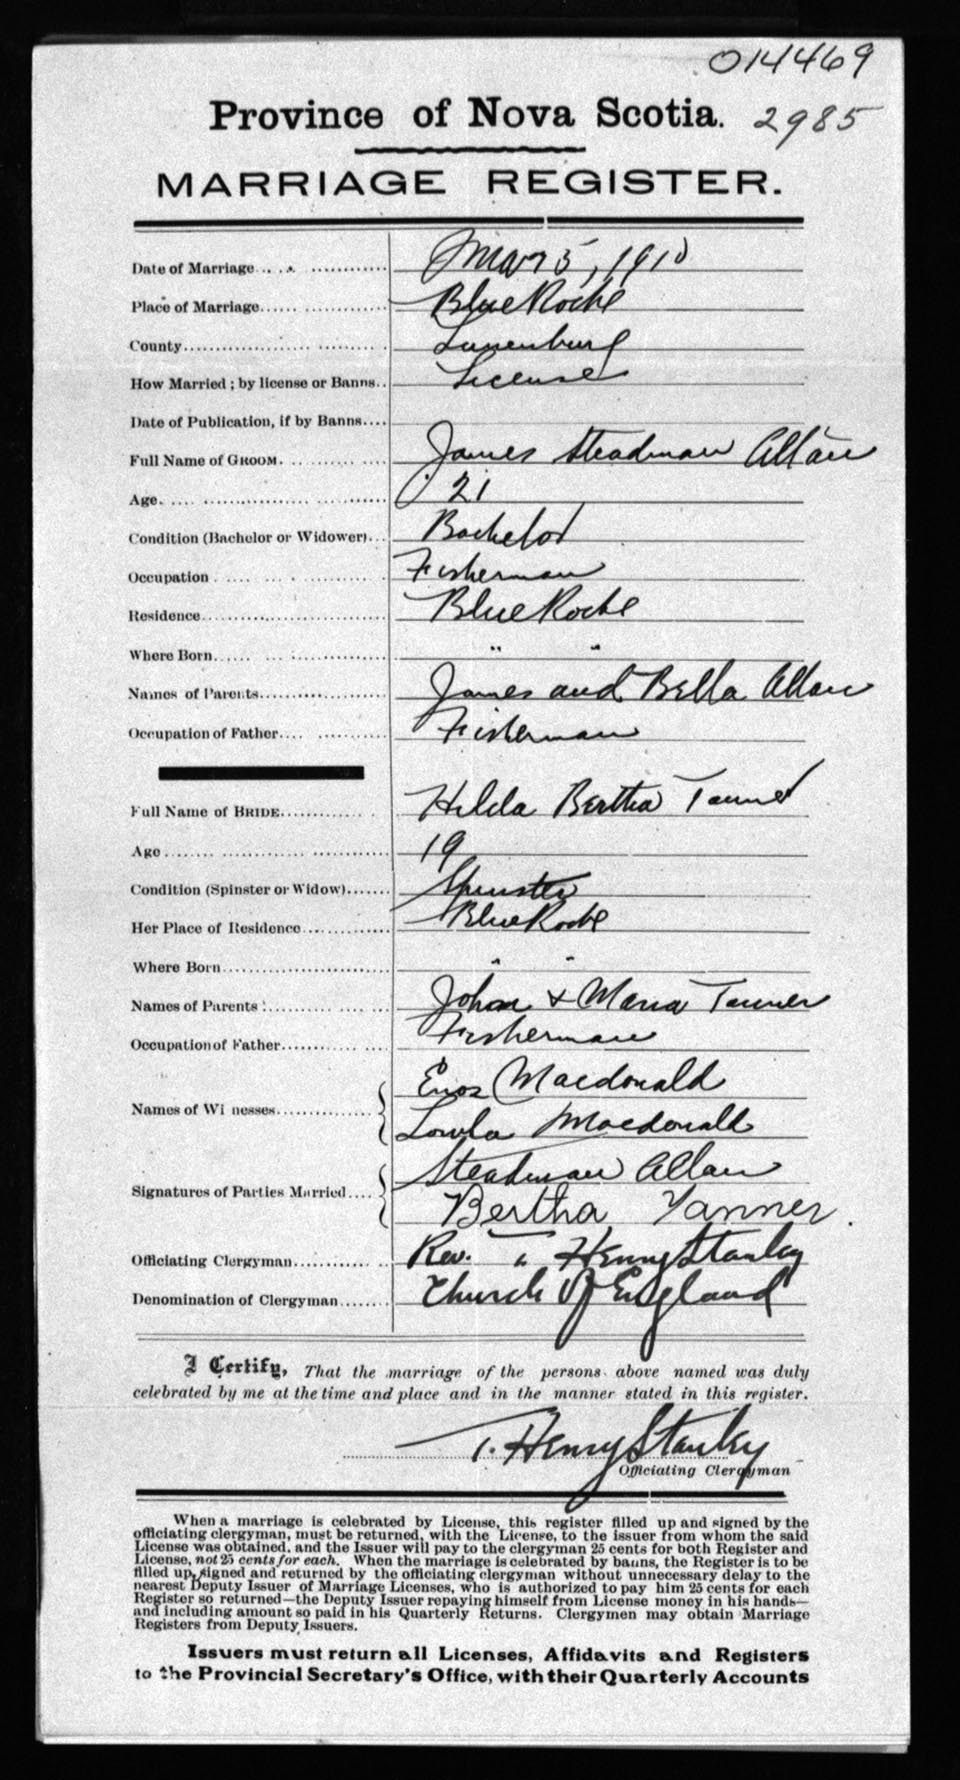 014469
Province of Nova Scotia. 2985
MARRIAGE REGISTER.
Date of Marriage Mar 5, 1910
Place of Marriage Blue Rocke
County Lunenburg
How Married; by license or Banns.. License
Date of Publication, if by Banns....
Full Name of GROOM. James Steadman Allan
Age 21
Condition (Bachelor or Widower)... Bachelor
Occupation Fisherman
Residence Blue Rocke
Where Born " "
Names of Parents James and Bella Allan
Occupation of Father Fisherman
Full Name of BRIDE Hilda Bertha Tanner
Age 19
Condition (Spinster or Widow) Spinster
Her Place of Residence Blue Rocke
Where Born " "
Names of Parents John & Maria Tanner
Occupation of Father Fisherman
Names of Wi nesses Enos Macdonald
Macdonald
Signatures of Parties Married Steadman Allan
Bertha Tanner.
Officiating Clergyman Rev. T. Henry Stanley
Denomination of Clergyman Church of England
I Certify, That the marriage of the persons above named was duly
celebrated by me at the time and place and in the manner stated in this register.
T. Henry Stanley
Officiating Clergyman
When a marriage is celebrated by License, this register filled up and signed by the
officiating clergyman, must be returned, with the License, to the issuer from whom the said
License was obtained, and the Issuer will pay to the clergyman 25 cents for both Register and
License, not 25 cents for each. When the marriage is celebrated by banns, the Register is to be
filled up, signed and returned by the officiating clergyman without unnecessary delay to the
nearest Deputy Issuer of Marriage Licenses, who is authorized to pay him 25 cents for each
Register so returned—the Deputy Issuer repaying himself from License money in his hands—
and including amount so paid in his Quarterly Returns. Clergymen may obtain Marriage
Registers from Deputy Issuers.
Issuers must return all Licenses, Affidavits and Registers
to the Provincial Secretary's Office, with their Quarterly Accounts